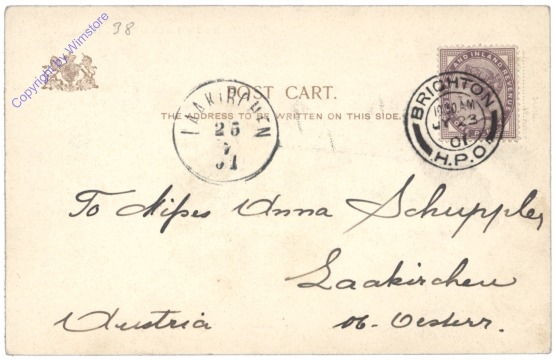 38
Copyright by Wimstore
POST CART.
THE ADDRESS TO BE WRITTEN ON THIS SIDE.
AND INLAND REVENUE
BRIGHTON
10.30 AM
23
01
H.P.O.
LAAKIRCHEN
25
01
To Misses Anna Schuppler,
Laakirchen
Austria ob. Oesterr.